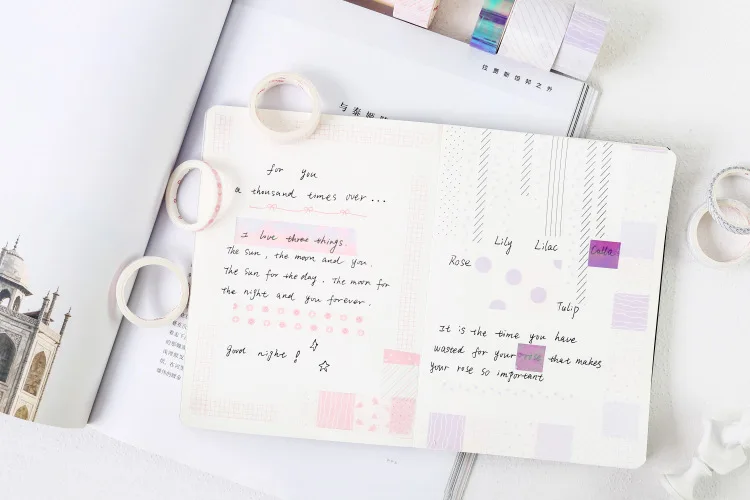 拉贾斯坦邦之外
for you
a thousand times over...
I love three things.
The sun, the moon and you.
The Sun for the day. The moon for
the night and you forever.
good night!
Lily Lilac Calla
Rose
Tulip
It is the time you have
wasted for your rose that makes
your rose so important